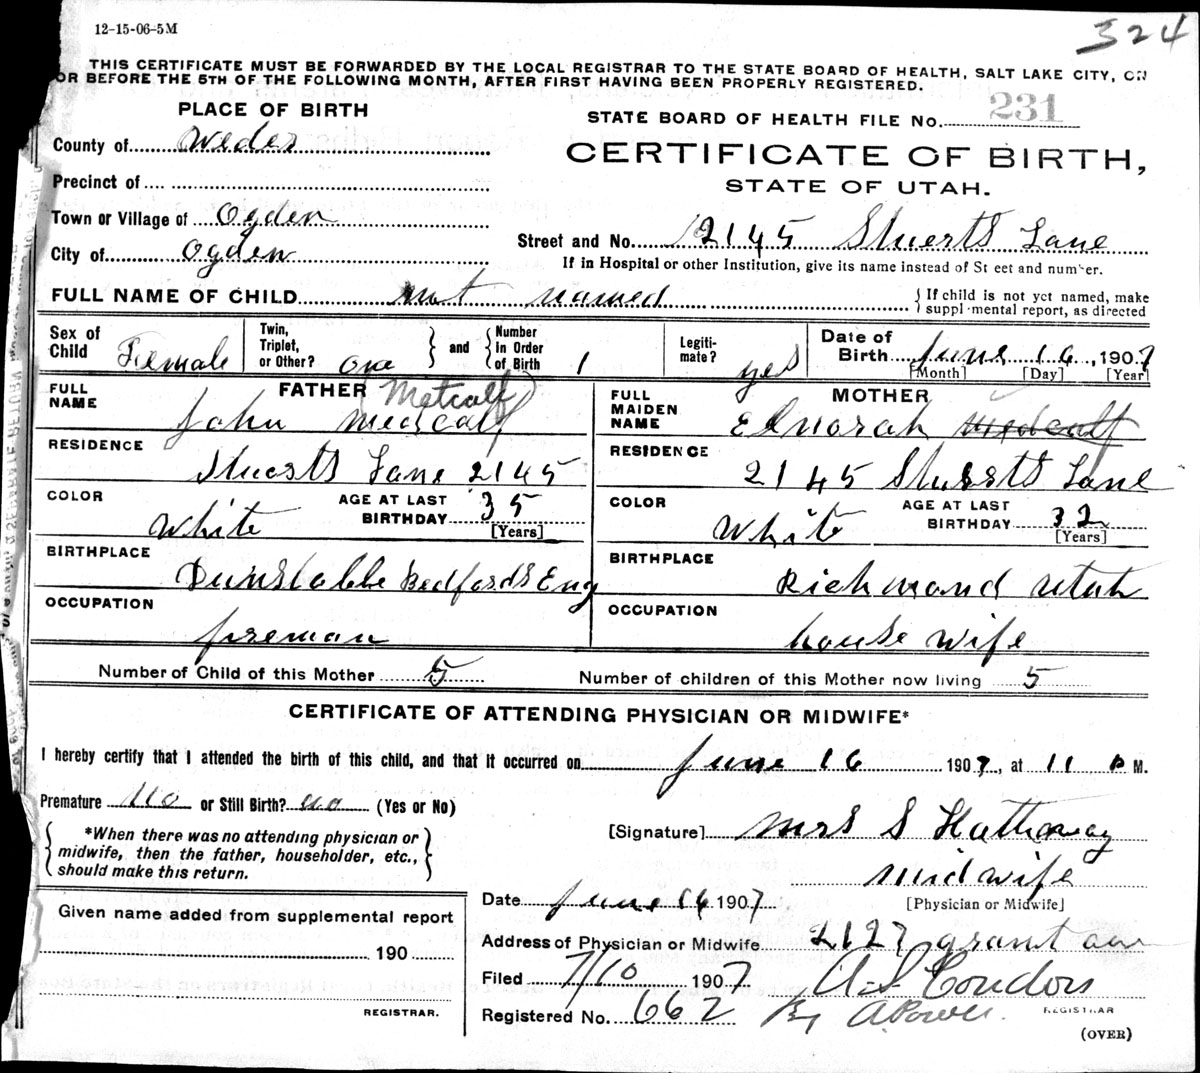 12-15-06-5M
324
THIS CERTIFICATE MUST BE FORWARDED BY THE LOCAL REGISTRAR TO THE STATE BOARD OF HEALTH, SALT LAKE CITY, ON
OR BEFORE THE 5TH OF THE FOLLOWING MONTH, AFTER FIRST HAVING BEEN PROPERLY REGISTERED.
PLACE OF BIRTH
STATE BOARD OF HEALTH FILE No. 231
County of Weder
CERTIFICATE OF BIRTH,
STATE OF UTAH.
Precinct of
Town or Village of Ogden
Street and No. 2145 Stuerts Lane
City of Ogden
If in Hospital or other Institution, give its name instead of St eet and number.
FULL NAME OF CHILD not named
{ If child is not yet named, make
suppl mental report, as directed
Sex of Child Female
Twin, Triplet, or Other? one } and { Number in Order of Birth 1
Legiti- mate? yes
Date of Birth June 16, 1907
[Month] [Day] [Year]
FATHER
FULL NAME John Mescalf Metcalf
RESIDENCE Stuerts Lane 2145
COLOR White
AGE AT LAST BIRTHDAY 35 [Years]
BIRTHPLACE Dunstabbe Bedfords Eng
OCCUPATION fireman
MOTHER
FULL MAIDEN NAME Elnorah Medcalf
RESIDENCE 2145 Stuerts Lane
COLOR White
AGE AT LAST BIRTHDAY 32 [Years]
BIRTHPLACE Richmond Utah
OCCUPATION house wife
Number of Child of this Mother 5
Number of children of this Mother now living 5
CERTIFICATE OF ATTENDING PHYSICIAN OR MIDWIFE*
I hereby certify that I attended the birth of this child, and that it occurred on June 16 1907, at 11 P M.
Premature no or Still Birth? no (Yes or No)
{ *When there was no attending physician or
midwife, then the father, householder, etc.,
should make this return. }
[Signature] Mrs S Hathaway
midwife
[Physician or Midwife]
Date June 16 1907
Given name added from supplemental report
190
REGISTRAR.
Address of Physician or Midwife 2127 grant ave
Filed 7/10 1907 A. S. Condon
Registered No. 662 By A Power.
REGISTRAR
(OVER)